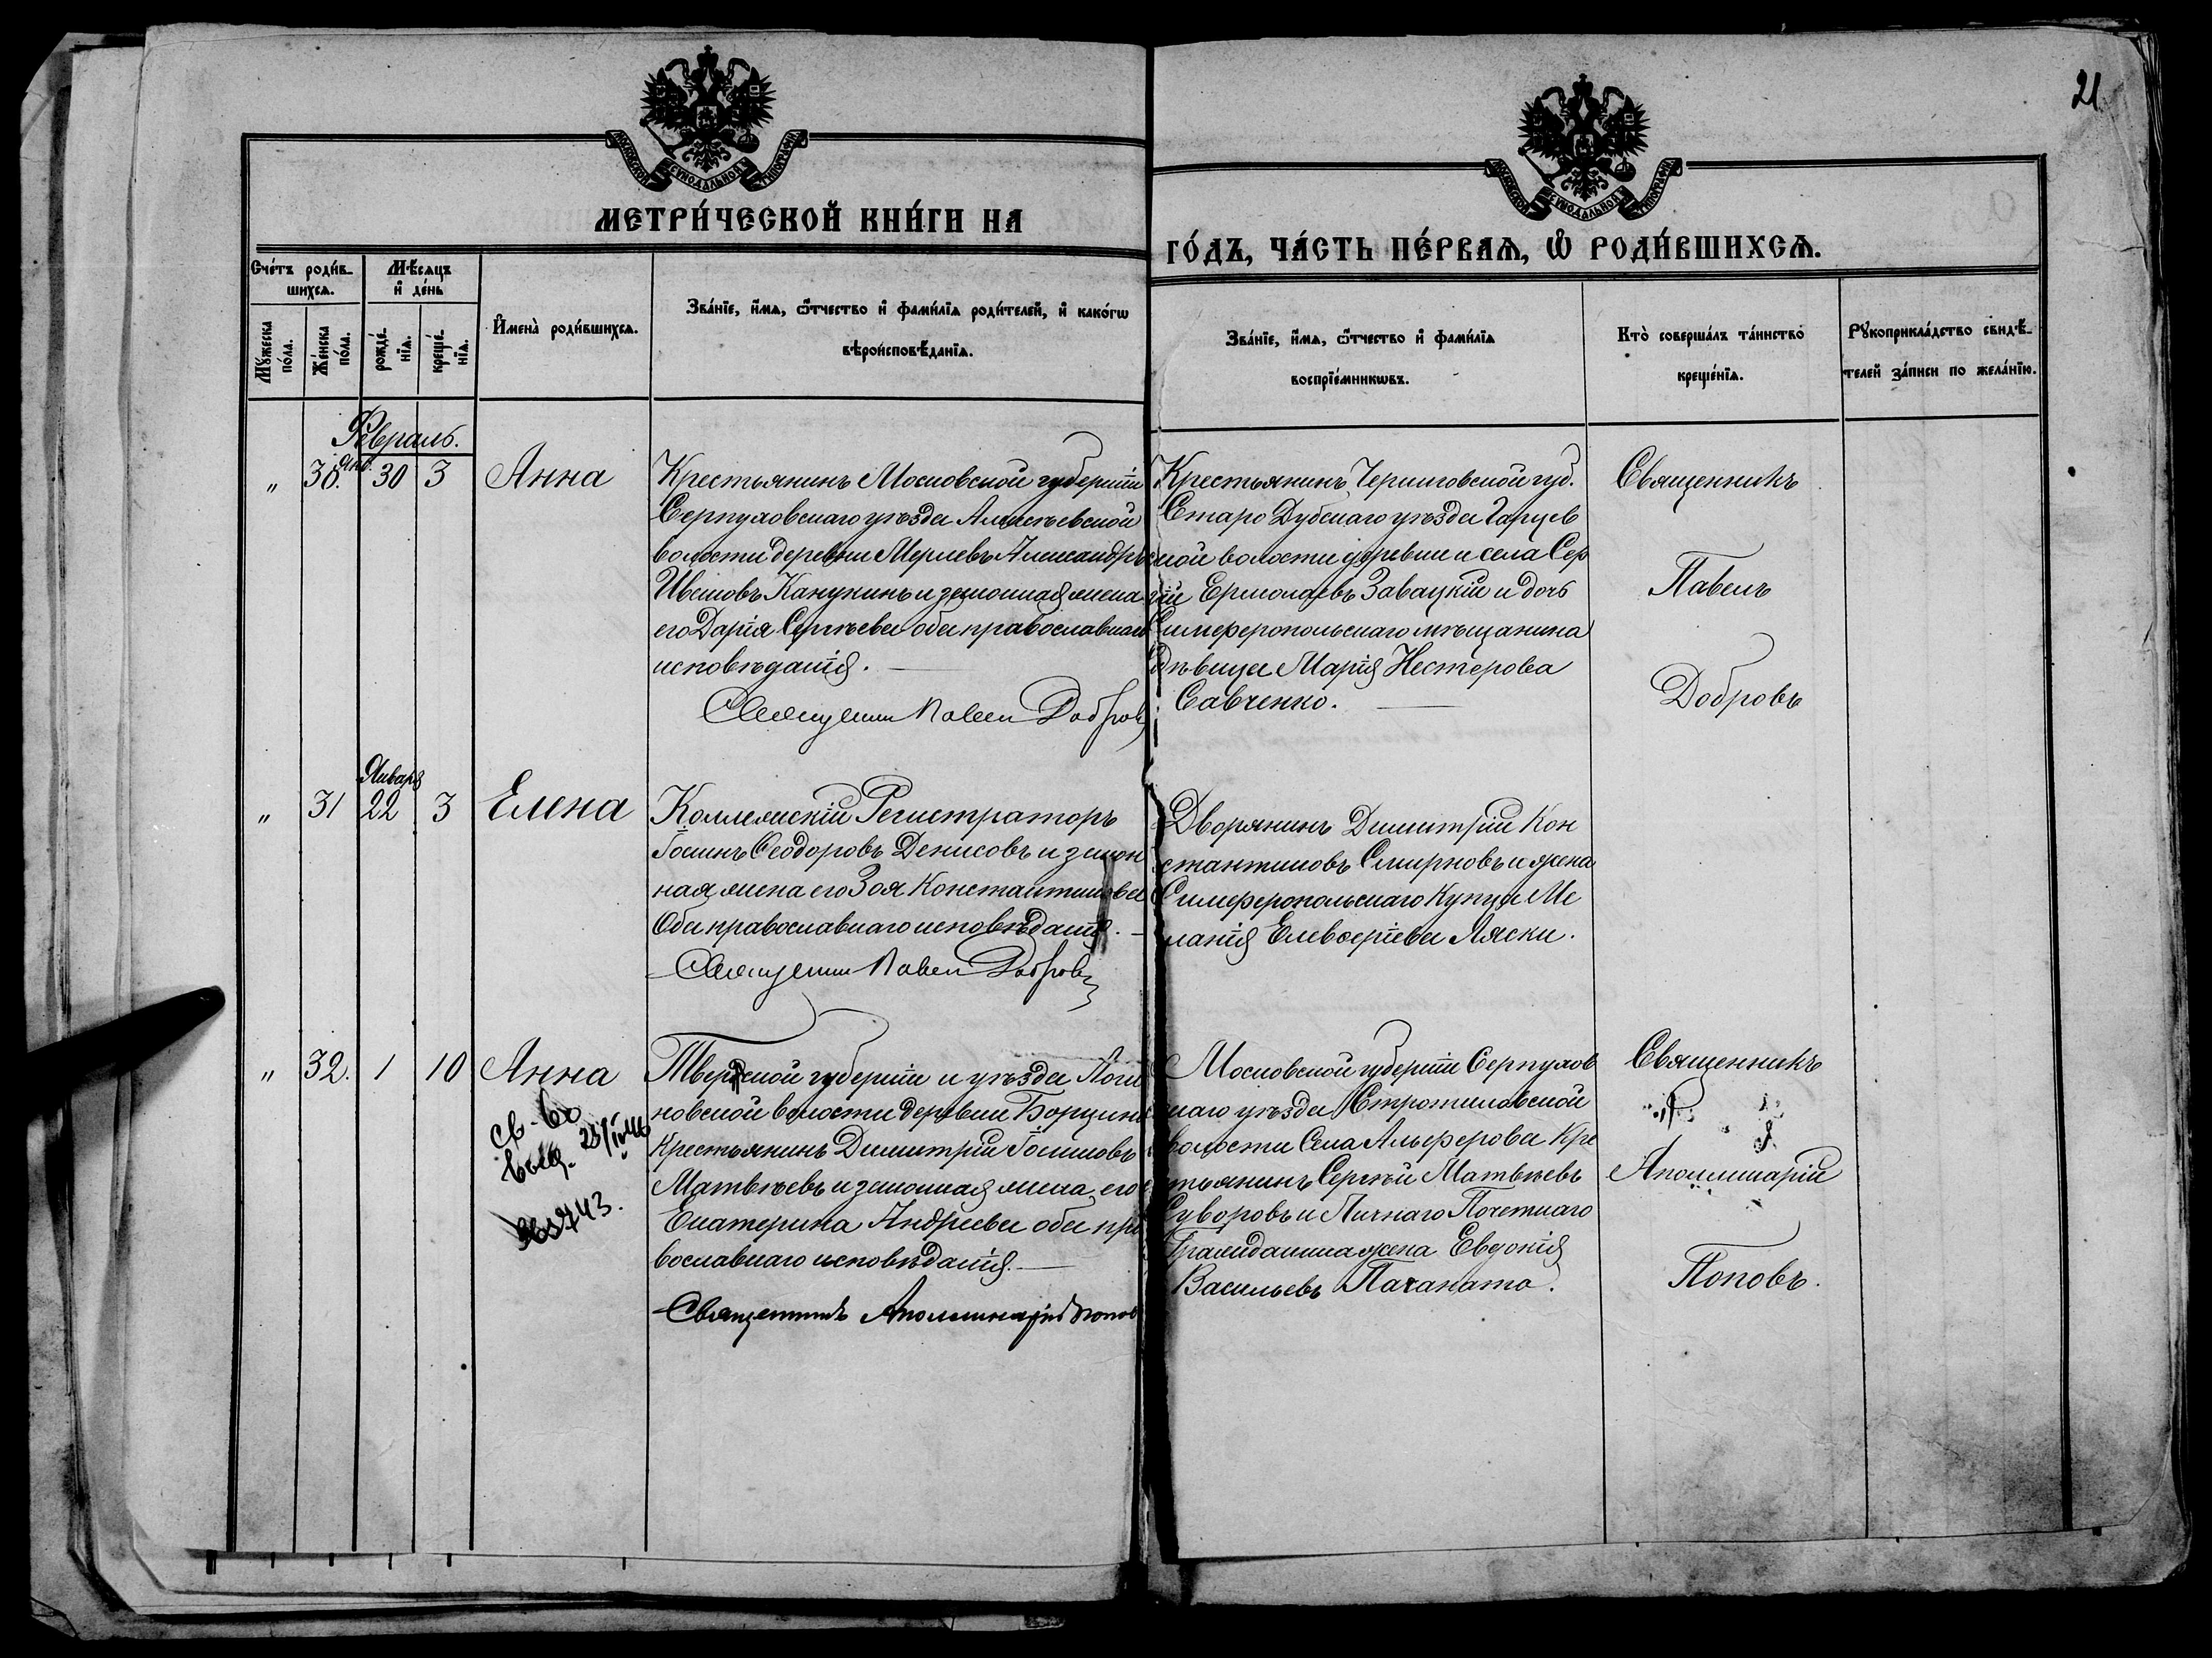 21
МЕТРИ́ЧЕСКОЙ КНИ́ГИ НА
ГО́ДЪ, ЧА́СТЬ ПЕ́РВАЯ, Ѿ РОДИ́ВШИХСѦ.
Сче́тъ роди́в-
шихсѧ.
Мѣ́сѧцъ
и҆ де́нь
Мꙋ́жеска
по́ла.
Же́нска
по́ла.
рожде́-
нїѧ.
креще́-
нїѧ.
И҆мена̀ роди́вшихсѧ.
Зва́нїе, и҆́мѧ, ѻ҆́тчество и҆ фами́лїѧ роди́телей, и҆ како́гѡ
вѣроисповѣ́данїѧ.
Зва́нїе, и҆́мѧ, ѻ҆́тчество и҆ фами́лїѧ
воспрїе́мникѡвъ.
Кто̀ соверша́лъ та́инство
креще́нїѧ.
Рꙋкоприкла́дство свидѣ́-
телей за́писи по жела́нїю.
Февраль.
„ 30. Янв. 30 3 Анна
Крестьянинъ Московской губерніи
Серпуховскаго уѣзда Алексѣевской
волости деревни Александръ
Ивановъ Канукинъ и законная жена
его Дарія Сергѣева оба православнаго
исповѣданія.
Священник Павел Добров
Крестьянинъ Черниговской губ.
Старо Дубскаго уѣзда
ской волости деревни и села Сер
гій Ермолаевъ Завацкій и дочь
Симферопольскаго мѣщанина
дѣвица Марія Нестерова
Савченко.
Священникъ
Павелъ
Добровъ
Январь
„ 31 22 3 Елена
Коллежскій Регистраторъ
Іоаннъ Ѳеодоровъ Денисовъ и закон
ная жена его Зоя Константинова
Оба православнаго исповѣданія.
Священник Павел Добров
Дворянинъ Димитрій Кон
стантиновъ Смирновъ и жена
Симферопольскаго купца Ме
ланія Елевѳеріева Ляски.
„ 32. 1 10 Анна
св-во
выд. 23/IV 46
Тверской губерніи и уѣзда Логи
новской волости деревни
Крестьянинъ Димитрій Іоанновъ
Матвѣевъ и законная жена его
Екатерина Андреева оба пра
вославнаго исповѣданія.
Священникъ Аполлинарій Попов
Московской губерніи Серпухов
скаго уѣзда
волости Села Алферова Кре
стьянинъ Сергѣй Матвѣевъ
Суворовъ и Личнаго Почетнаго
Гражданина жена Евдокія
Васильевъ Пачапата.
Священникъ
Аполлинарій
Поповъ.